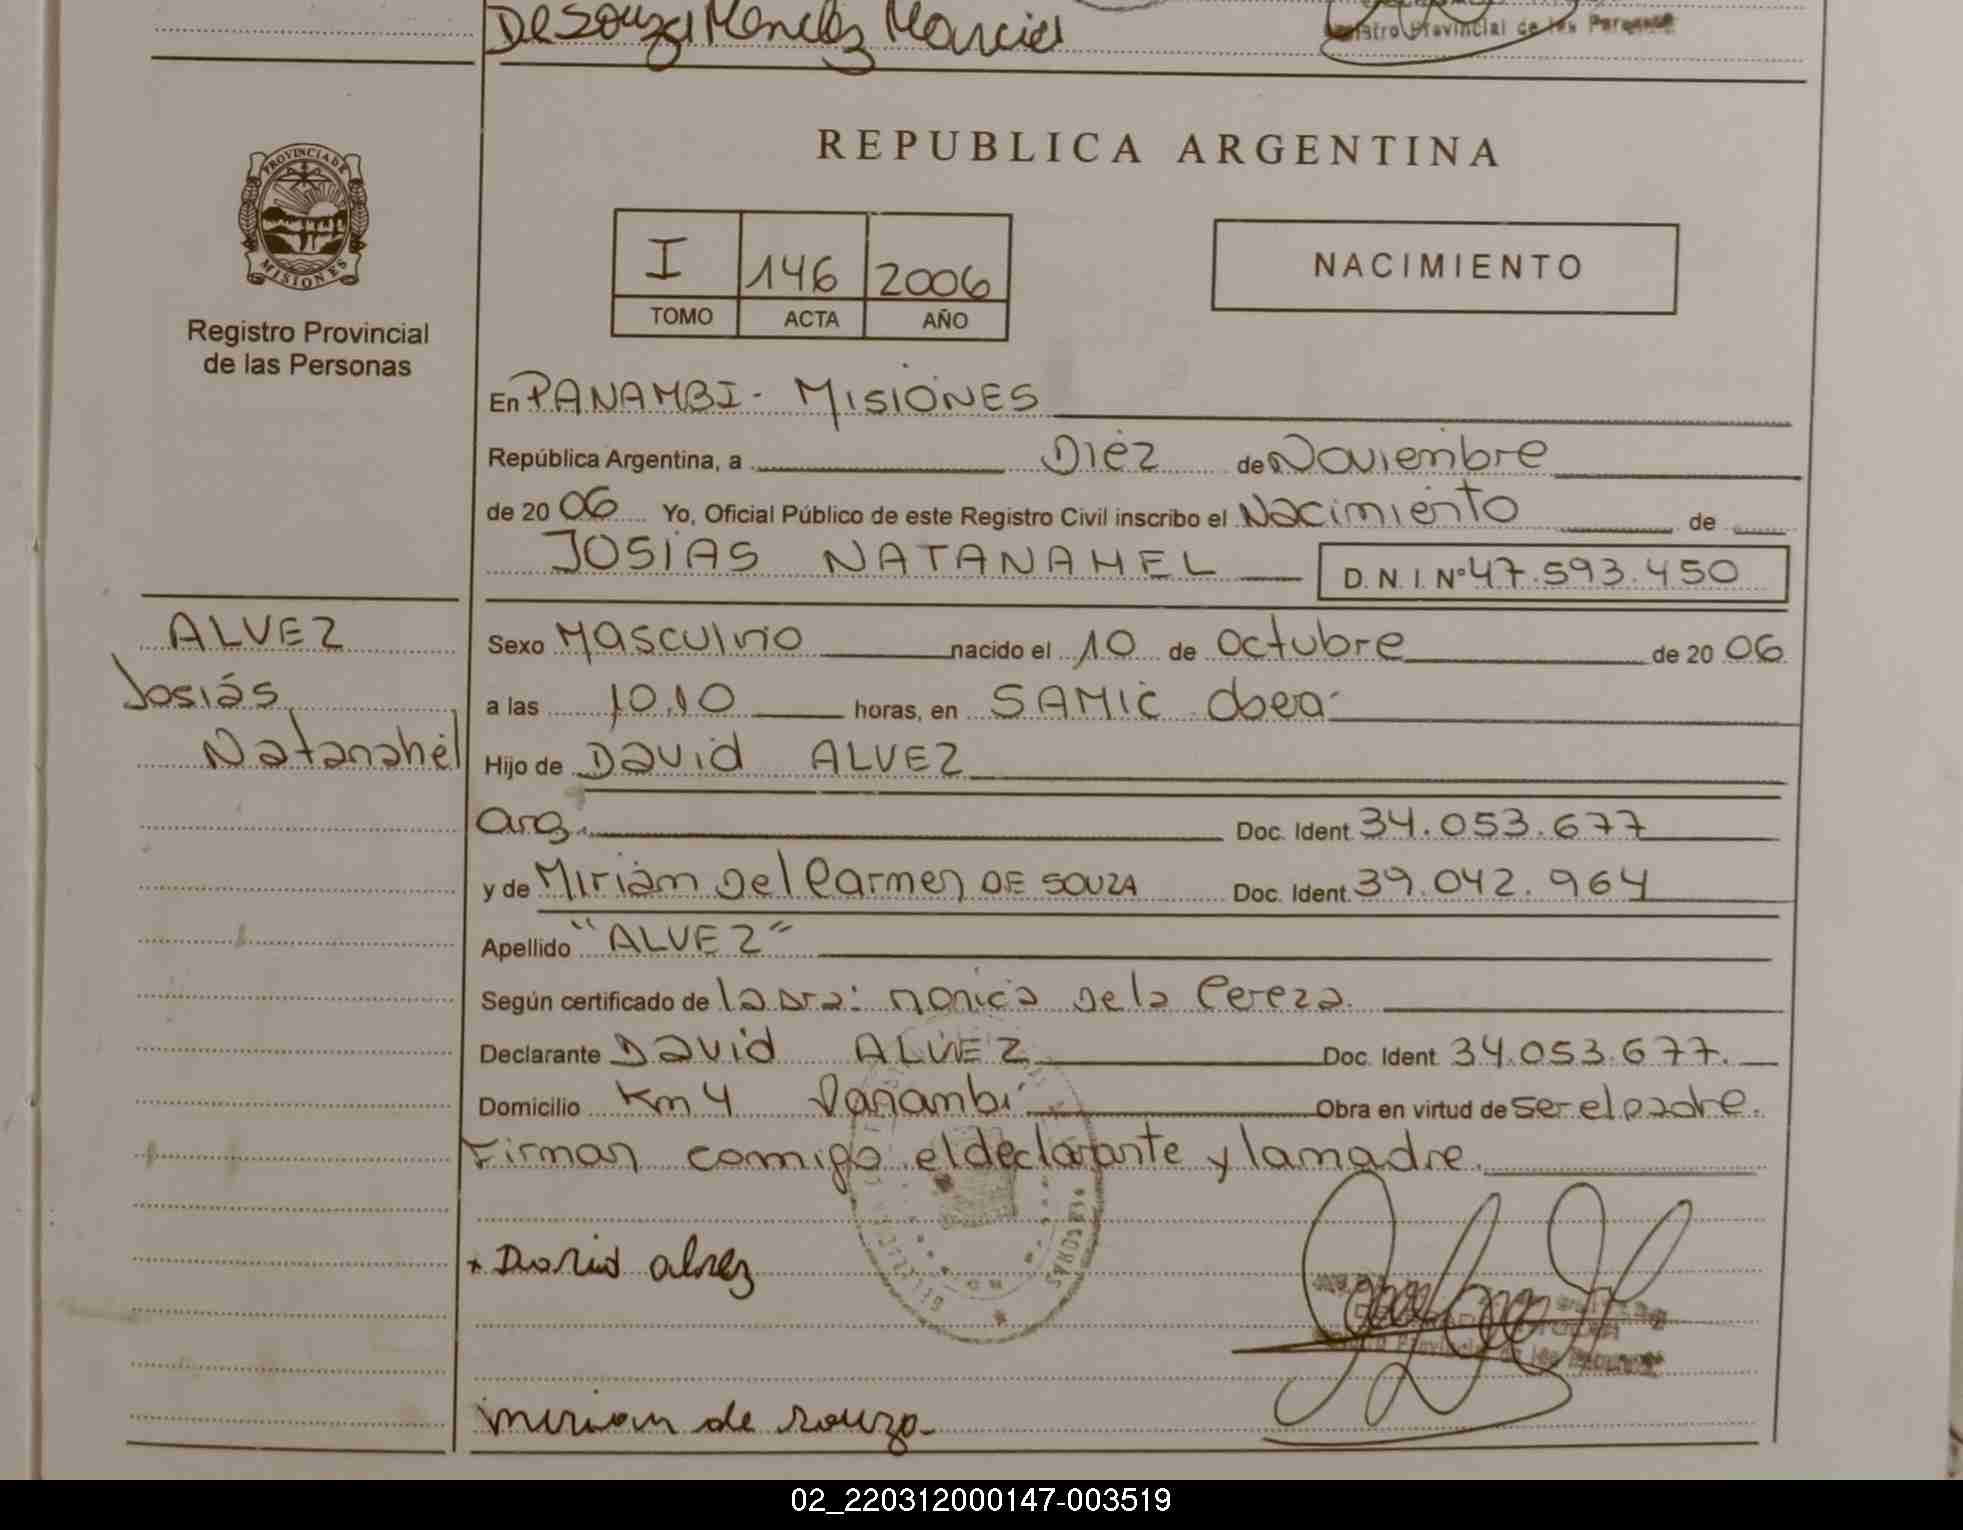 De Souza Mendez Marciel
Registro Provincial de las Personas
PROVINCIA DE
MISIONES
Registro Provincial
de las Personas
REPUBLICA ARGENTINA
I 146 2006
TOMO ACTA AÑO
NACIMIENTO
En PANAMBI - MISIONES
República Argentina, a Diez de Noviembre
de 20 06 Yo, Oficial Público de este Registro Civil inscribo el Nacimiento de
JOSIAS NATANAHEL D.N.I. Nº 47.593.450
ALVEZ
Josiás
Natanahel
Sexo Masculino nacido el 10 de octubre de 20 06
a las 10.10 horas, en SAMIC Oberá
Hijo de David ALVEZ
Arg. Doc. Ident. 34.053.677
y de Miriam Del Carmen DE SOUZA Doc. Ident. 39.042.964
Apellido "ALVEZ"
Según certificado de la Dra: Monica De la Cereza.
Declarante David ALVEZ Doc. Ident. 34.053.677.
Domicilio Km 4 Panambí Obra en virtud de ser el padre.
Firman comigo el declarante y la madre.
x David alvez
miriam de souza
02_220312000147-003519